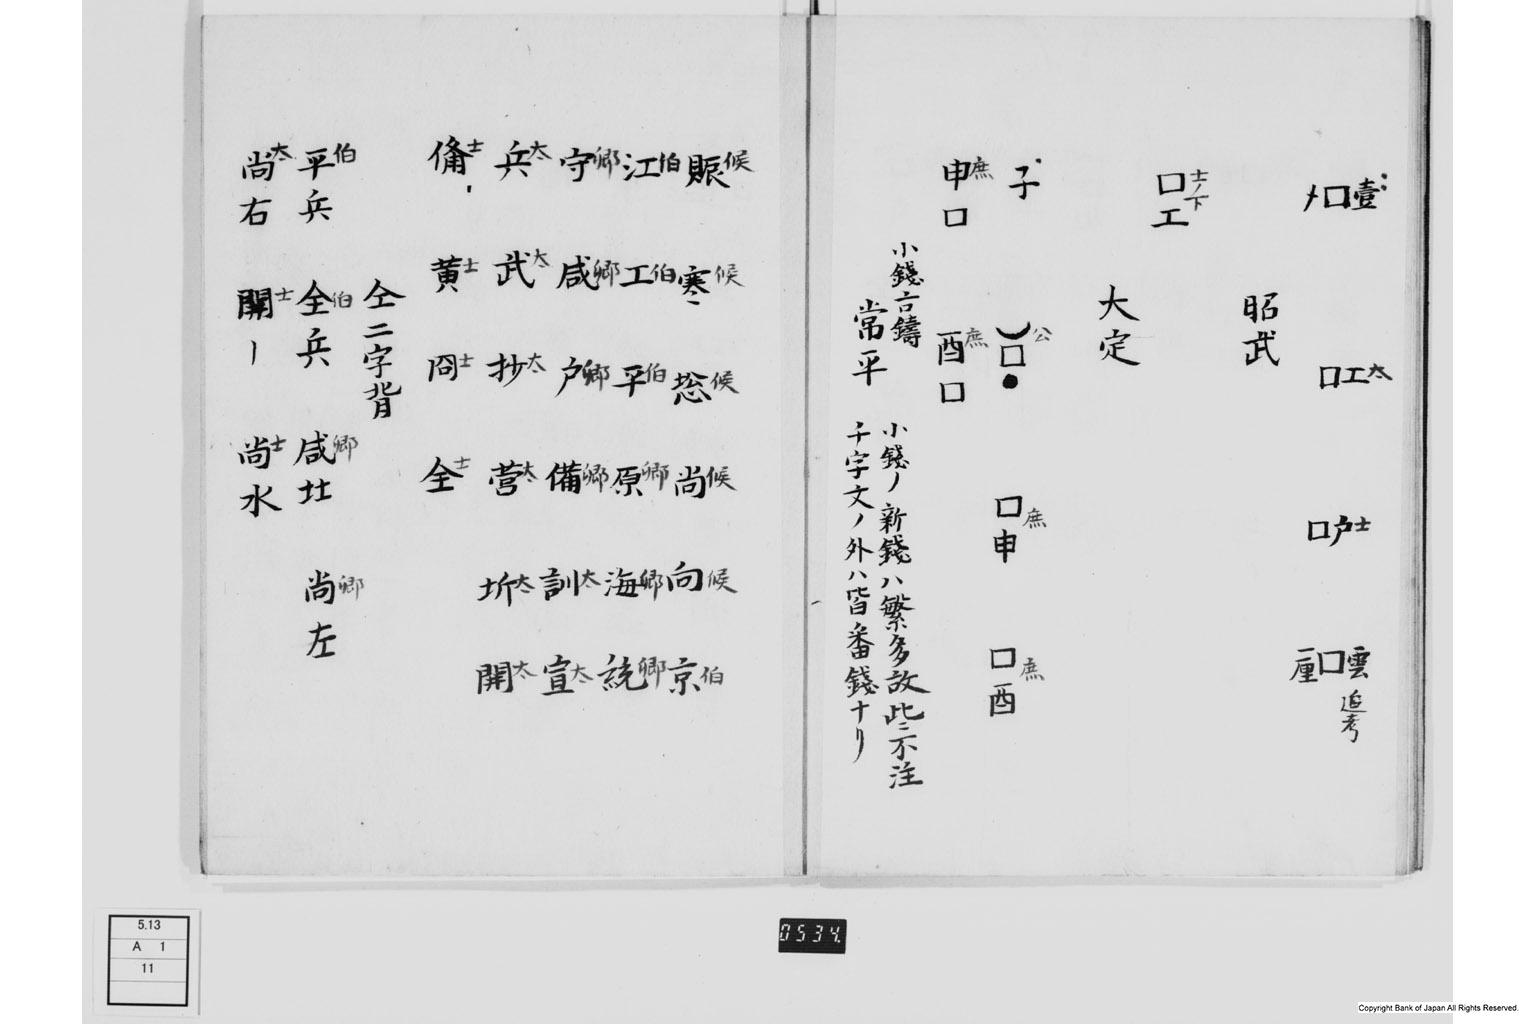 壹口〆 口工太 口户士 雲口厘 追考
昭武
口工 士ノ下
大定
子 口●公 口申庶 口酉庶
申口庶 酉口庶
小錢古鑄
常平
小錢ノ新錢ハ繁多故此ニ不注
千字文ノ外ハ皆番錢ナリ
賑候 寒候 捴候 尚候 向候 京伯
江伯 工伯 平伯 原卿 海卿 統卿
守卿 咸卿 户卿 備卿 訓太 宣太
兵太 武太 抄太 營太 圻太 開太
備士 黄士 冏士 全士
仝二字背
平兵伯 全兵伯 咸壯卿 尚左卿
尚右太 開一士 尚水士
5.13
A 1
11
0534.
Copyright Bank of Japan All Rights Reserved.